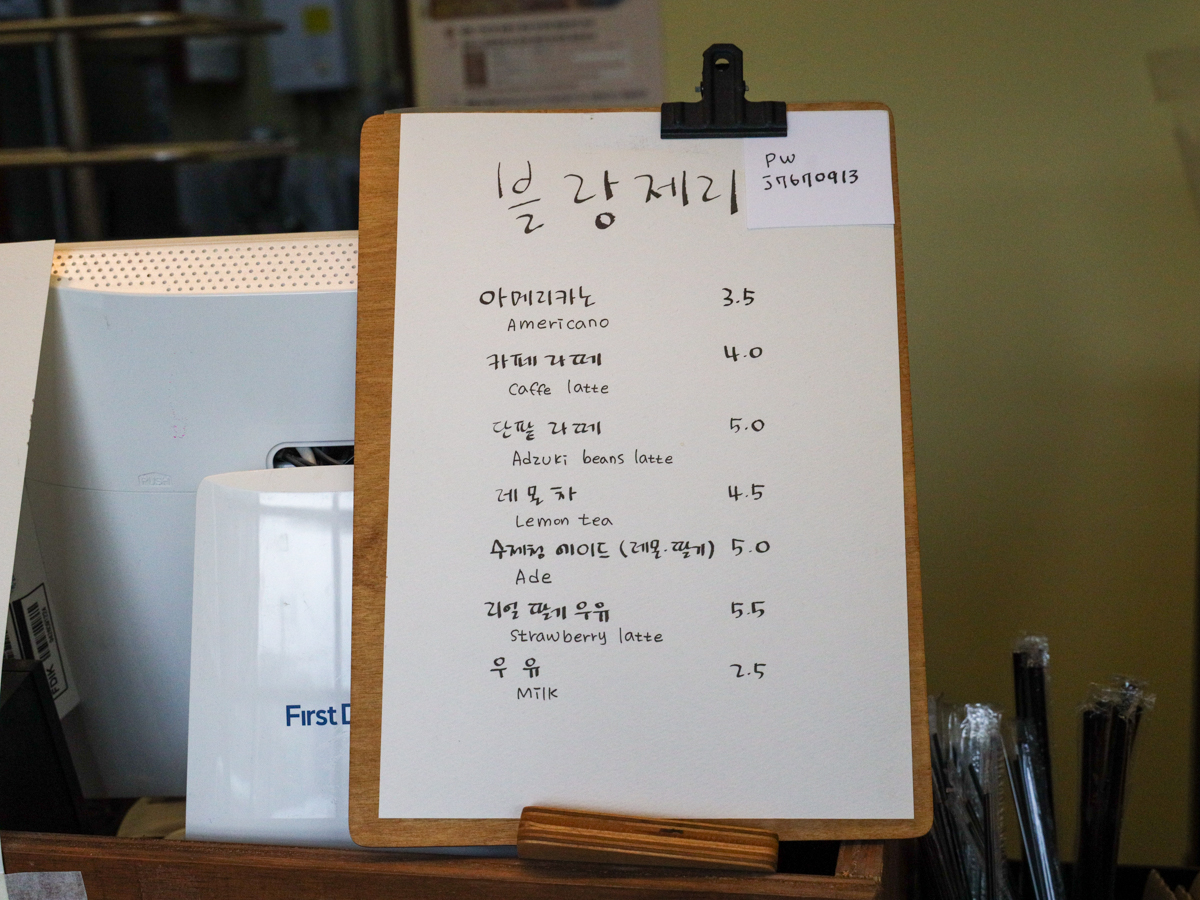 블랑제리
PW
j7670913
아메리카노 3.5
Americano
카페 라떼 4.0
Caffe latte
단팥 라떼 5.0
Adzuki beans latte
레몬차 4.5
Lemon tea
수제청 에이드 (레몬.딸기) 5.0
Ade
리얼 딸기 우유 5.5
Strawberry latte
우유 2.5
Milk
First D